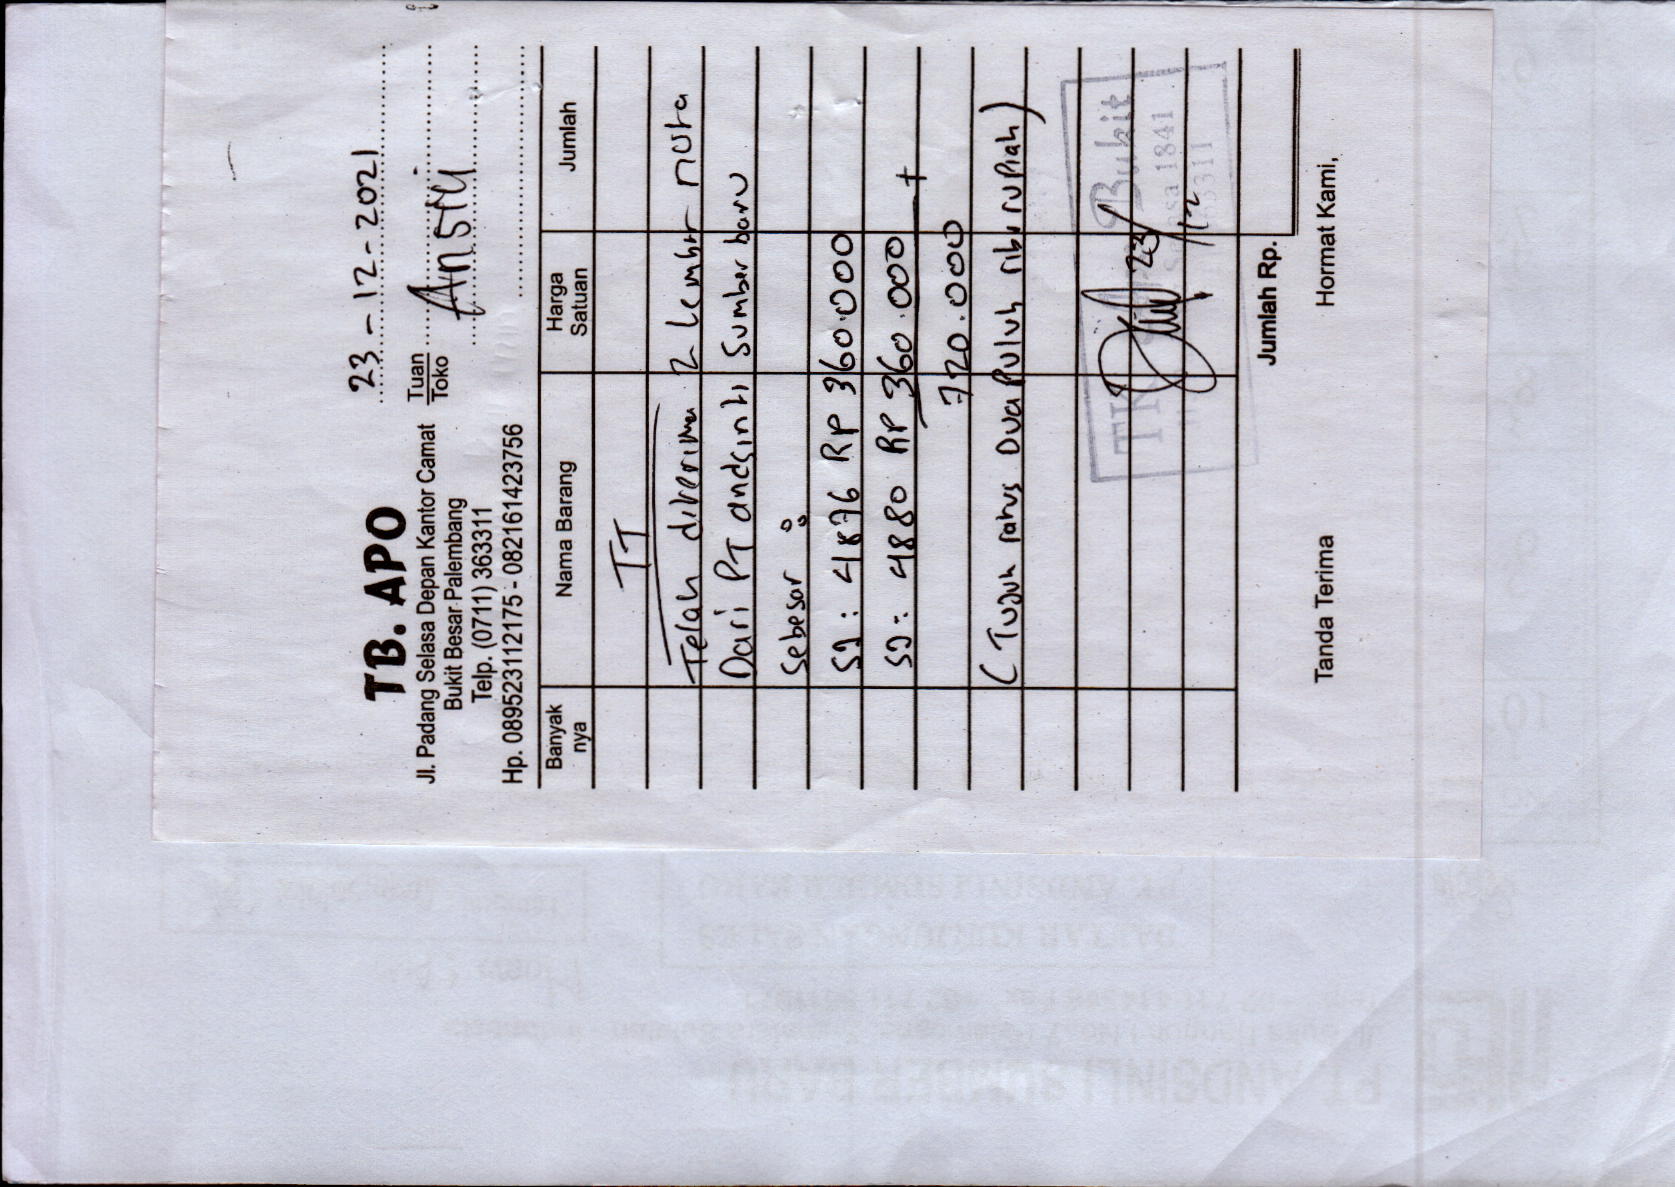 TB. APO
Jl. Padang Selasa Depan Kantor Camat
Bukit Besar Palembang
Telp. (0711) 363311
Hp. 089523112175 - 082161423756
23 - 12 - 2021
Tuan
Toko
Banyak nya
Nama Barang
Harga Satuan
Jumlah
TT
Telah diterima 2 Lembar nota
Dari PT andsinli Sumber baru
Sebesar :
SJ : 4876 RP 360.000
SJ : 4880 RP 360.000 +
720.000
( Tujuh ratus Dua Puluh ribu rupiah )
TK
Bukit
1841
23/12
Jumlah Rp.
Tanda Terima
Hormat Kami,
PT. ANDSINLI SUMBER BARU